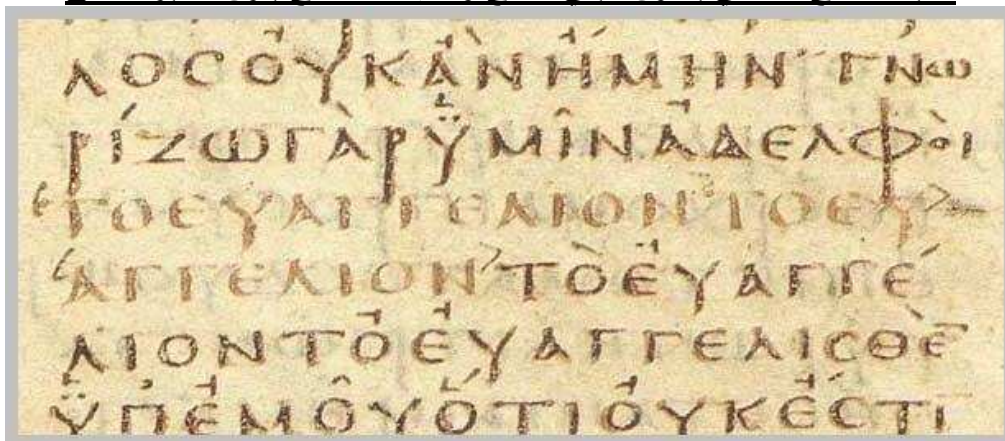 ΛΟϹΟὐΚἂΝἬΜΗΝ ΓΝω
ΡΊΖΩΓᾺΡὙ̈ΜῖΝἈΔΕΛΦΟὶ
ΤΟΕΥΑΓΓΕΛΙΟΝΤΟΕΥ
ΑΓΓΕΛΙΟΝΤῸΕὐΑΓΓΈ
ΛΙΟΝΤὸΕὐΑΓΓΕΛΙϹΘῈ̄
ὙΠἘΜΟῦὍΤΙΟὐΚἜϹΤΙ